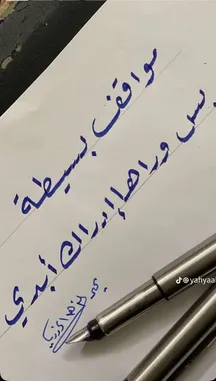 مواقف بسيطة
بس وراها إدراك أبدي
@yahyaa